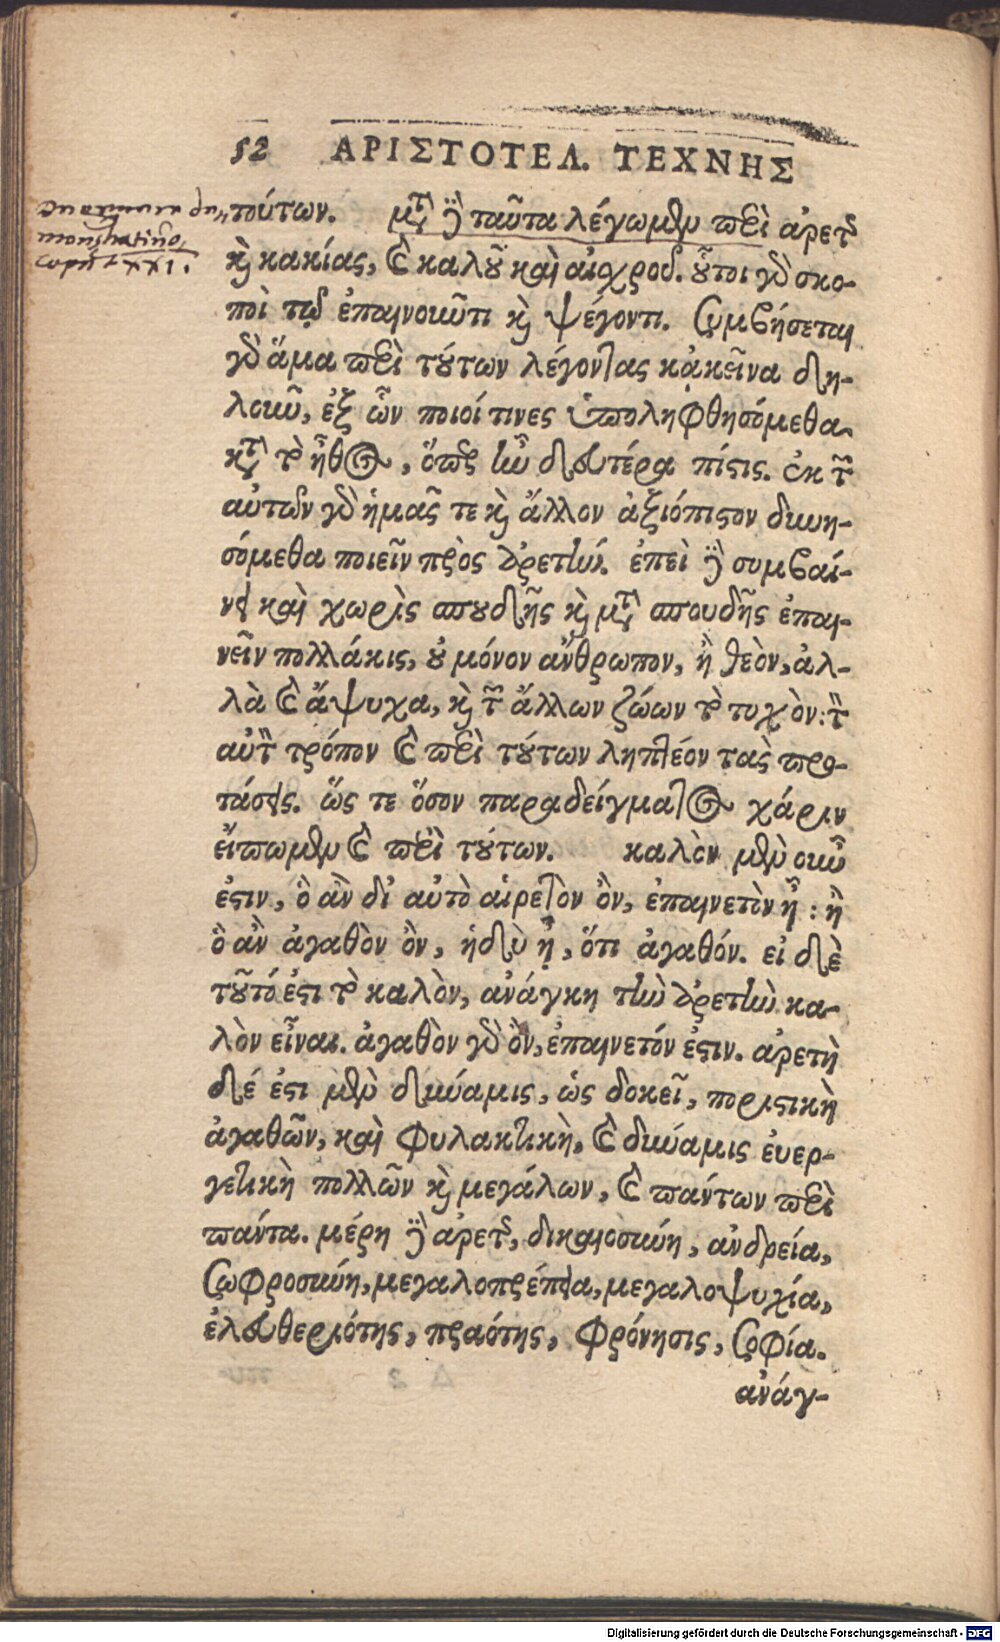 52 ΑΡΙΣΤΟΤΕΛ. ΤΕΧΝΗΣ
τούτων. μτ̀ ὃ ταῦτα λέγωμεν περὶ ἀρετῆς
κὴ κακίας, καὶ καλοῦ καὶ αἰσχροῦ. οὗτοι γὸ σκο-
ποὶ τῷ ἐπαινοῦντι κὴ ψέγοντι. συμβήσεται
γὸ ἅμα περὶ τούτων λέγοντας κἀκεῖνα δη-
λοῦν, ἐξ ὧν ποιοί τινες ὑποληφθησόμεθα
κτ̀ τὸ ἦθος, ὅπερ ἦν δευτέρα πίστις. ἐκ τῶν
αὐτῶν γὸ ἡμᾶς τε κὴ ἄλλον ἀξιόπιστον δυνη-
σόμεθα ποιεῖν πρὸς ἀρετήν. ἐπεὶ ὃ συμβαί-
νει καὶ χωρὶς σπουδῆς κὴ μτ̀ σπουδῆς ἐπαι-
νεῖν πολλάκις, οὐ μόνον ἄνθρωπον, ἢ θεὸν, ἀλ-
λὰ καὶ ἄψυχα, κὴ τῶν ἄλλων ζώων τὸ τυχὸν: τὸν
αὐτὸν τρόπον καὶ περὶ τούτων ληπτέον τὰς προ-
τάσεις. ὥς τε ὅσον παραδείγματος χάριν
εἴπωμεν καὶ περὶ τούτων. καλὸν μὲν οὖν
ἐστιν, ὃ ἂν δι' αὐτὸ αἱρετὸν ὂν, ἐπαινετὸν ᾖ: ἢ
ὃ ἂν ἀγαθὸν ὂν, ἡδὺ ᾖ, ὅτι ἀγαθόν. εἰ δὲ
τοῦτό ἐστι τὸ καλὸν, ἀνάγκη τὴν ἀρετὴν κα-
λὸν εἶναι. ἀγαθὸν γὸ ὂν, ἐπαινετόν ἐστιν. ἀρετὴ
δέ ἐστι μὲν δύναμις, ὡς δοκεῖ, ποριστικὴ
ἀγαθῶν, καὶ φυλακτικὴ, καὶ δύναμις ἐυερ-
γετικὴ πολλῶν κὴ μεγάλων, καὶ πάντων περὶ
πάντα. μέρη ὃ ἀρετῆς, δικαιοσύνη, ἀνδρεία,
σωφροσύνη, μεγαλοπρέπεια, μεγαλοψυχία,
ἐλευθεριότης, πραότης, φρόνησις, σοφία.
ἀνάγ-
Digitalisierung gefördert durch die Deutsche Forschungsgemeinschaft - DFG